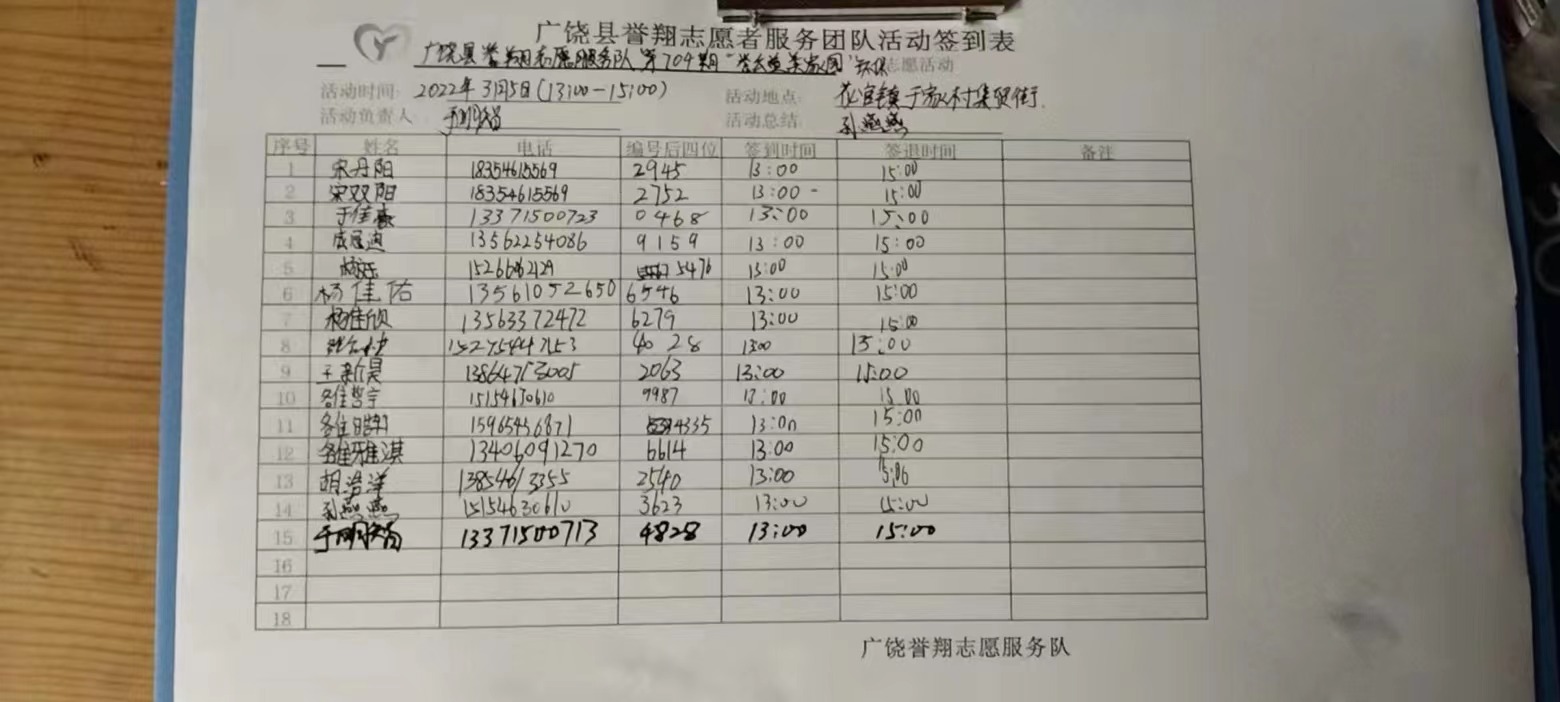 广饶县誉翔志愿者服务团队活动签到表
广饶县誉翔志愿服务队第704期“ 美家园”环保志愿活动
活动时间: 2022年3月5日(13:00-15:00) 活动地点: 花官镇于家村集贸街
活动负责人 活动总结: 孙燕燕
序号 姓名 电话 编号后四位 签到时间 签退时间 备注
1 宋丹阳 18354615569 2945 13:00 15:00
2 宋双阳 18354615569 2752 13:00 - 15:00
3 于佳豪 13371500723 0468 13:00 15:00
4 13562254086 9159 13:00 15:00
5 5476 13:00 15:00
6 杨佳佑 13561052650 6546 13:00 15:00
7 杨佳欣 13563372472 6279 13:00 15:00
8 15275447153 4028 1300 15:00
9 王新昊 13864753005 2063 13:00 15:00
10 15154630610 9987 13:00 15:00
11 15965456871 4335 13:00 15:00
12 雅淇 13406091270 6614 13:00 15:00
13 胡浩洋 13854613355 2540 13:00
14 孙燕燕 15154630610 3623 13:00 15:00
15 13371500713 4828 13:00 15:00
16
17
18
广饶誉翔志愿服务队